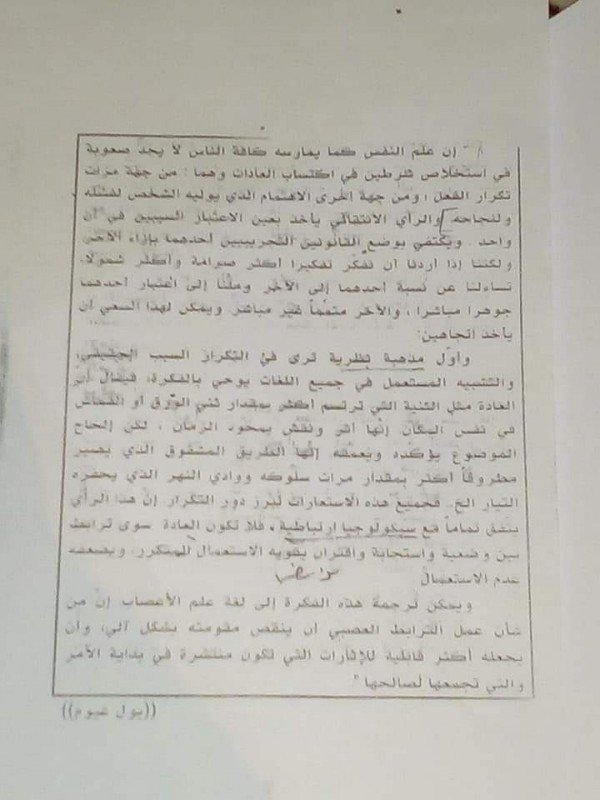 " إن علم النفس كما يمارسه كافة الناس لا يجد صعوبة
في استخلاص شرطين في اكتساب العادات وهما : من جهة مرات
تكرار الفعل ، ومن جهة أخرى الاهتمام الذي يوليه الشخص لفشله
ولنجاحه والرأي الانتقائي يأخذ بعين الاعتبار السببين في آن
واحد. ويكتفي بوضع القانونين التجريبيين أحدهما بإزاء الآخر.
ولكننا إذا أردنا أن نفكّر تفكيرا أكثر صرامة وأكثر شمولا،
تساءلنا عن نسبة أحدهما إلى الآخر وملْنا إلى اعتبار أحدهما
جوهرا مباشرا ، والآخر متمّماً غير مباشر. ويمكن لهذا السعي أن
يأخذ اتجاهين:
وأوّل مذهبة نظرية ترى في التكرار السبب الحقيقي،
والتشبيه المستعمل في جميع اللغات يوحي بالفكرة، فيقال أنّ
العادة مثل الثنية التي ترتسم أكثر بمقدار ثني الورق أو القماش
في نفس المكان إنّها أثر ونقش يمحوه الزمان ، لكن إلحاح
الموضوع يؤكّده ويعمّقه إنّها الطريق المشقوق الذي يصير
مطروقاً أكثر بمقدار مرات سلوكه ووادي النهر الذي يحفره
التيار الخ. فجميع هذه الاستعارات تبرز دور التكرار. إنّ هذا الرأي
يتفق تماماً مع سيكولوجيا ارتباطية ، فلا تكون العادة سوى ترابط
بين وضعية واستجابة واقتران يقويه الاستعمال المتكرر، ويضعفه
عدم الاستعمال
ويمكن ترجمة هذه الفكرة إلى لغة علم الأعصاب إنّ من
شأن عمل الترابط العصبي أن ينقص مقاومته بشكل آلي، وأن
يجعله أكثر قابلية للإثارات التي تكون منتشرة في بداية الأمر
والتي تجمعها لصالحها "
((بول غيوم))